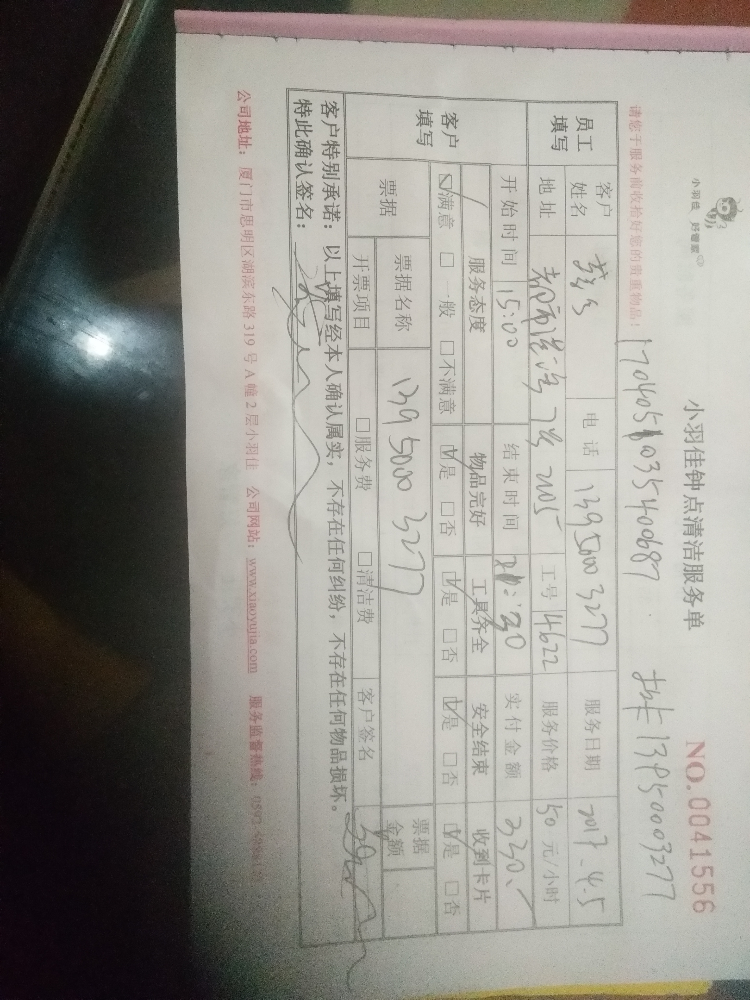 小羽佳 好管家
小羽佳钟点清洁服务单
NO.0041556
请您于服务前收拾好您的贵重物品!
1704051035400687
13950003277
员工填写 客户姓名 电话 13950003277 服务日期 2017.4.5
地址 2105 工号 14622 服务价格 50 元/小时
开始时间 15:00 结束时间 实付金额 330.
客户填写 服务态度 物品完好 工具齐全 安全结束 收到卡片
☑满意 □一般 □不满意 ☑是 □否 ☑是 □否 ☑是 □否 ☑是 □否
票据 票据名称 139 5000 3277 票据金额
开票项目 □服务费 □清洁费 客户签名
客户特别承诺:以上填写经本人确认属实,不存在任何纠纷,不存在任何物品损坏。
特此确认签名:
公司地址:厦门市思明区湖滨东路 319 号 A 幢 2 层小羽佳 公司网站:www.xiaoyujia.com 服务监督热线: